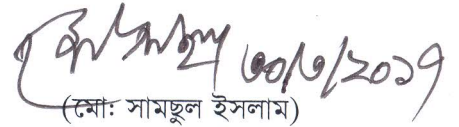 ৩০/৩/২০১৭
(মো: সামছুল ইসলাম)